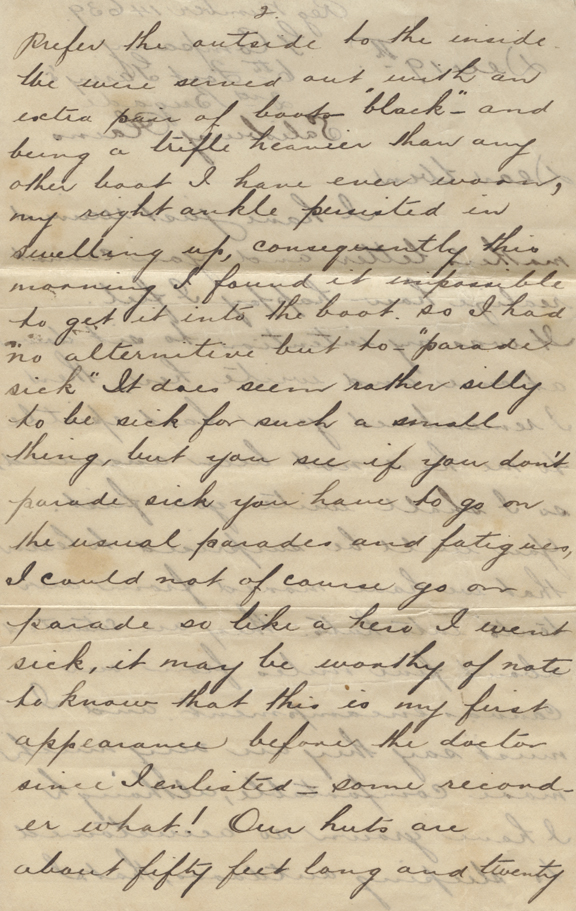 2.
Prefer the outside to the inside.
We were served out with an
extra pair of boots "black" - and
being a trifle heavier than any
other boot I have ever worn,
my right ankle persisted in
swelling up, consequently this
morning I found it impossible
to get it into the boot. so I had
no alternitive but to - "parade
sick" It does seem rather silly
to be sick for such a small
thing, but you see if you don't
parade sick you have to go on
the usual parades and fatigues,
I could not of course go on
parade so like a hero I went
sick, it may be worthy of note
to know that this is my first
appearance before the doctor
since I enlisted - some record-
er what! Our huts are
about fifty feet long and twenty